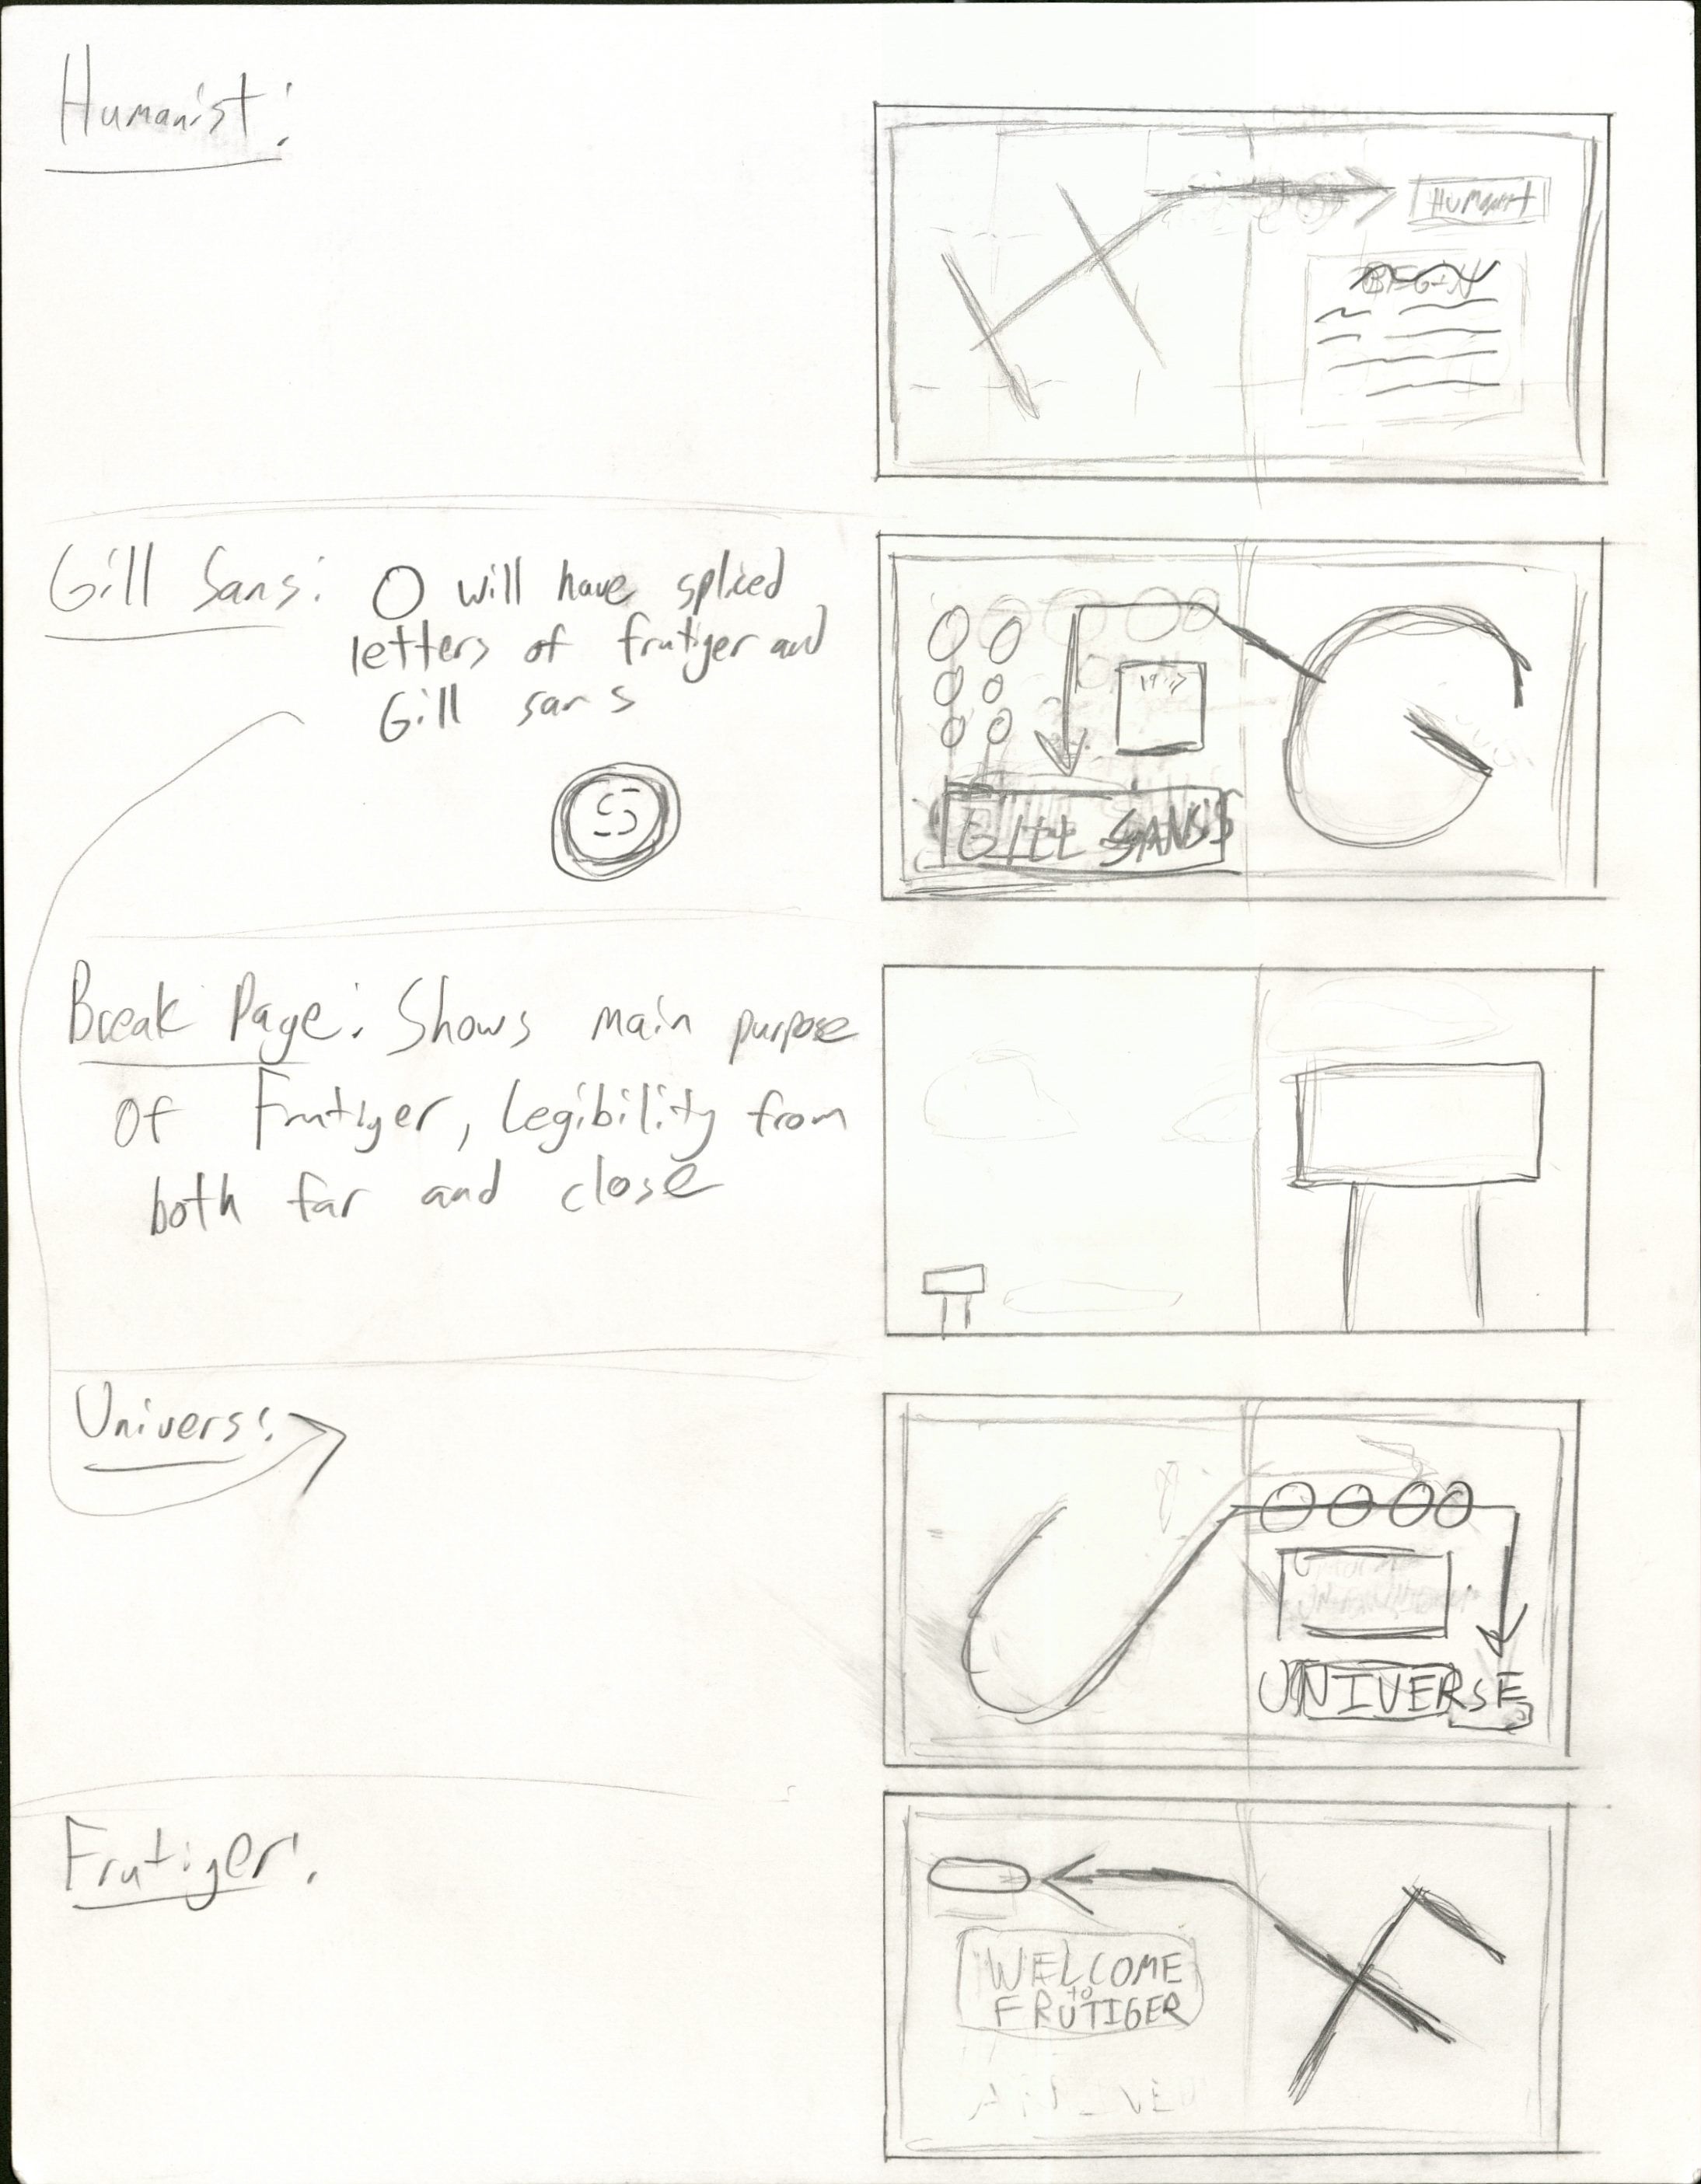 Humanist:
HUMANIST
BEGIN
Gill Sans: O will have spliced
letters of frutiger and
Gill sans
GILL SANS
Break Page: Shows main purpose
of Frutiger, Legibility from
both far and close
Univers:
UNIVERSE
Frutiger:
WELCOME
to
FRUTIGER